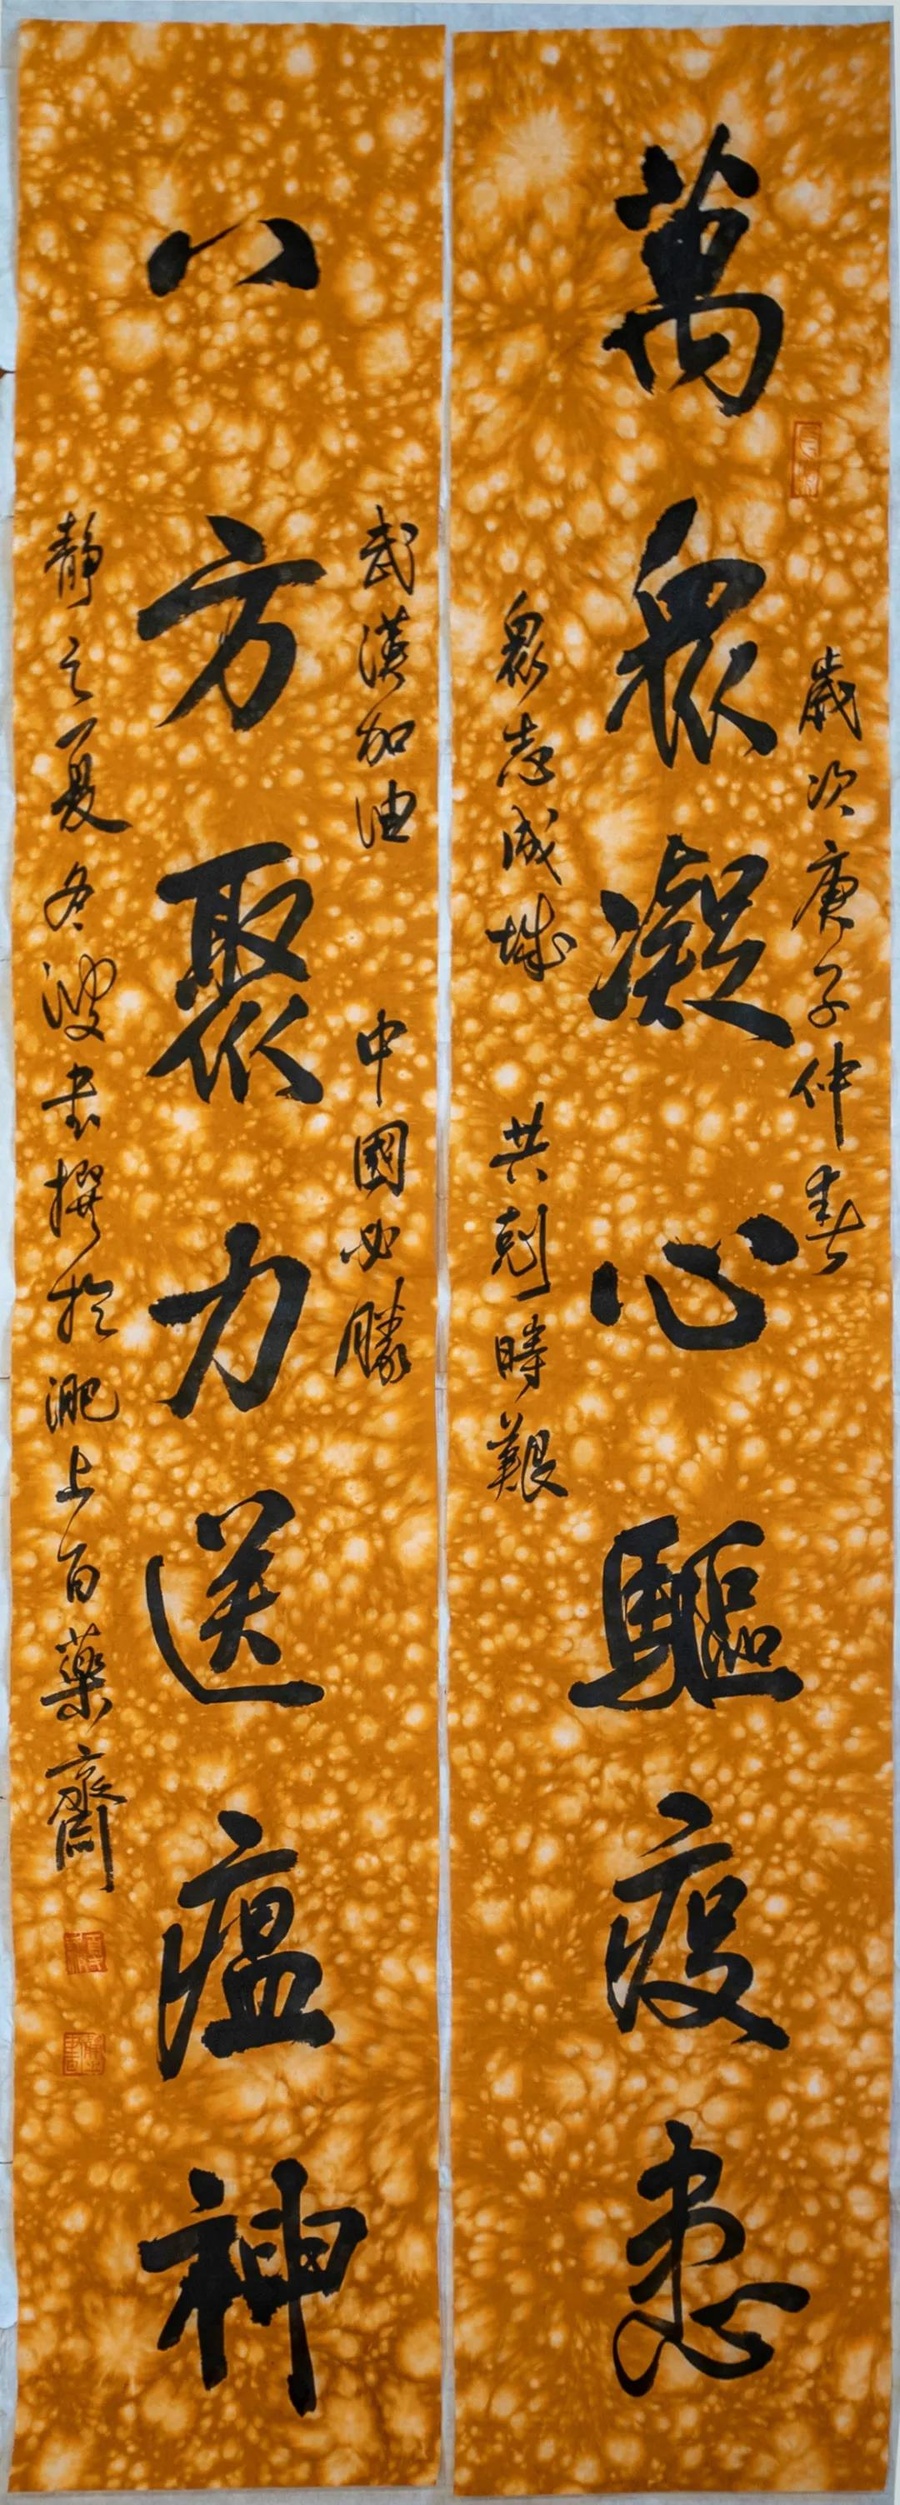 歲次庚子仲春
萬眾凝心驅疫患
眾志成城 共剋時艱
武漢加油 中國必勝
八方聚力送瘟神
靜之夏冬波書撰於淝上百藥齋